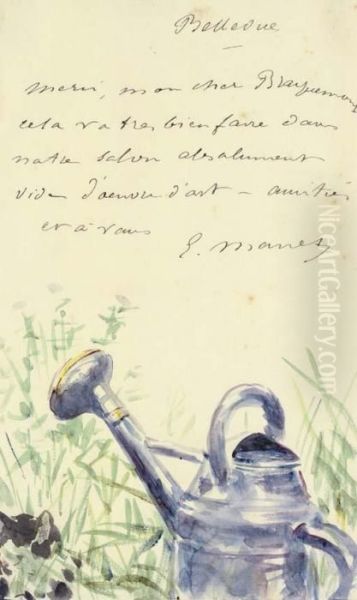 Bellevue
merci, mon cher Bracquemond
cela va tres bien faire dans
notre salon absolument
vide d'oeuvre d'art – amitiés
et à vous
E. Manet
NiceArtGallery.com